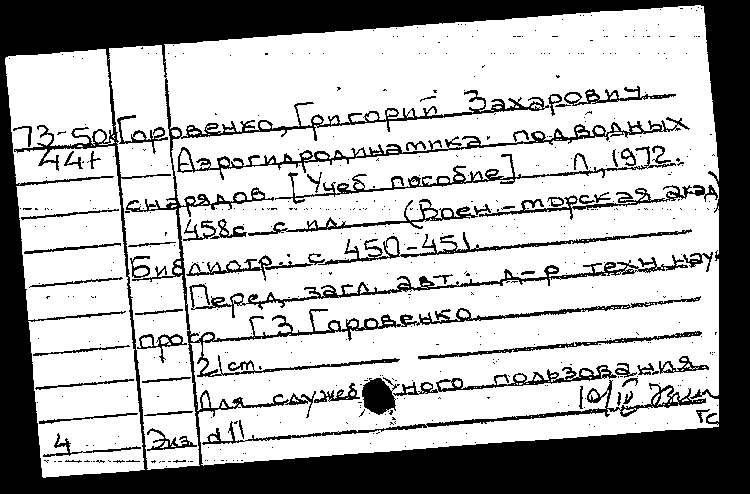 73-50к Гаровенко, Григорий Захарович.
44т Аэрогидродинамика подводных
снарядов [Учеб. пособие]. Л., 1972.
458с. с ил. (Воен.-морская акад)
Библиогр.: с. 450-451.
Перед загл. авт.: д-р техн. наук
проф. Г.З. Гаровенко.
21см.
Для служебного пользования
10/IV
гс
4 Экз.